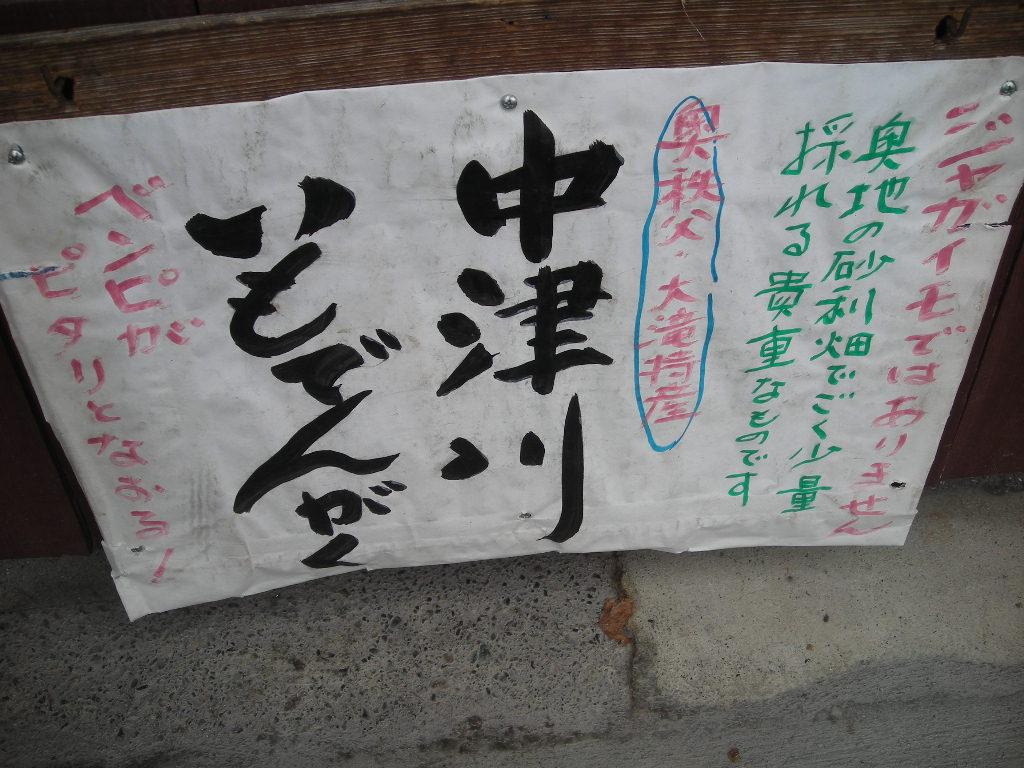 ジャガイモではありません
奥地の砂利畑でごく少量
採れる貴重なものです
奥秩父・大滝特産
中津川
いもでんがく
ベンピが
ピタリとなおる！